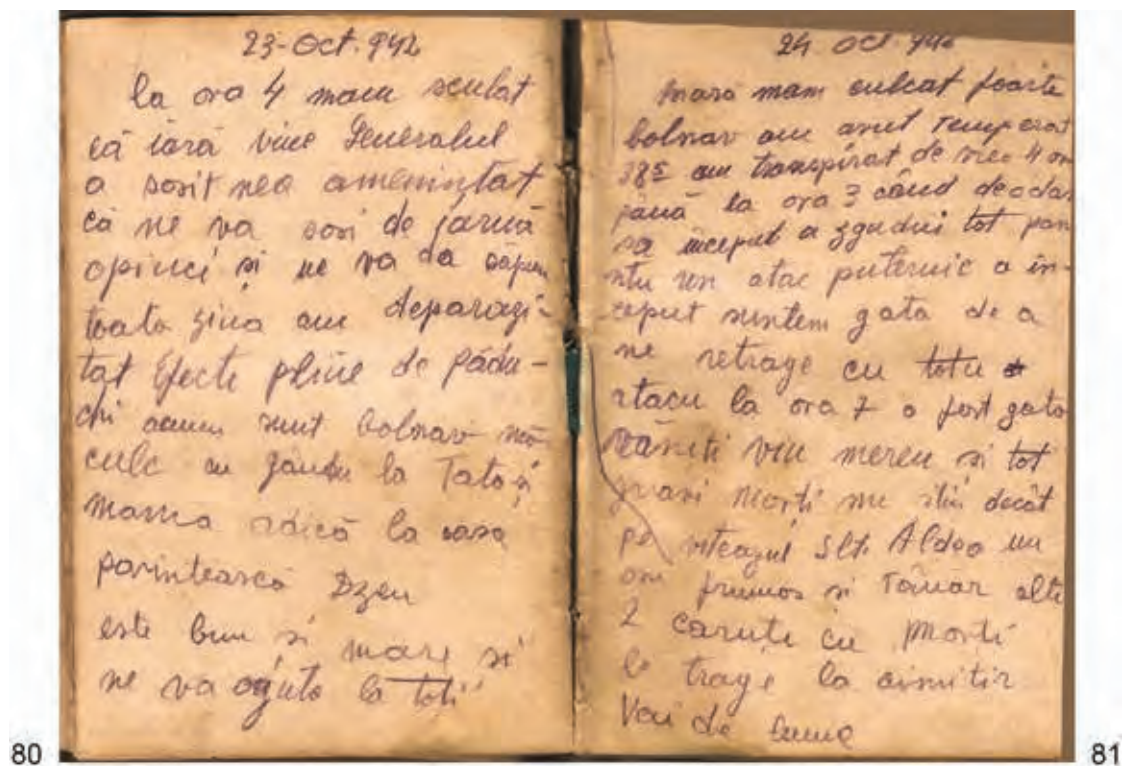 23-Oct. 942
la ora 4 mam sculat
că iară vine Generalul
a sosit nea amenințat
că ne va sosi de iarnă
opinci și ne va da săpun
toata ziua am deparazi-
tat Efecte pline de pădu-
chi acum sunt bolnav mă
culc cu gândul la Tata și
mama adică la casa
parintească Dzeu
este bun și mare și
ne va ajuta la toti
80
24 oct 942
mam culcat foarte
bolnav am avut temperat
385 am transpirat de vreo 4 or
până la ora 3 când deodat
sa inceput a zgudui tot pam
ntu un atac puternic a în-
ceput suntem gata de a
ne retrage cu totu
atacu la ora 7 a fost gata
răniti vin mereu si tot
morti nu știu decât
pe viteazul Slt. Aldea un
om frumos si Tânar alte
2 carute cu morti
le trage la cimitir
Vai de lume
81